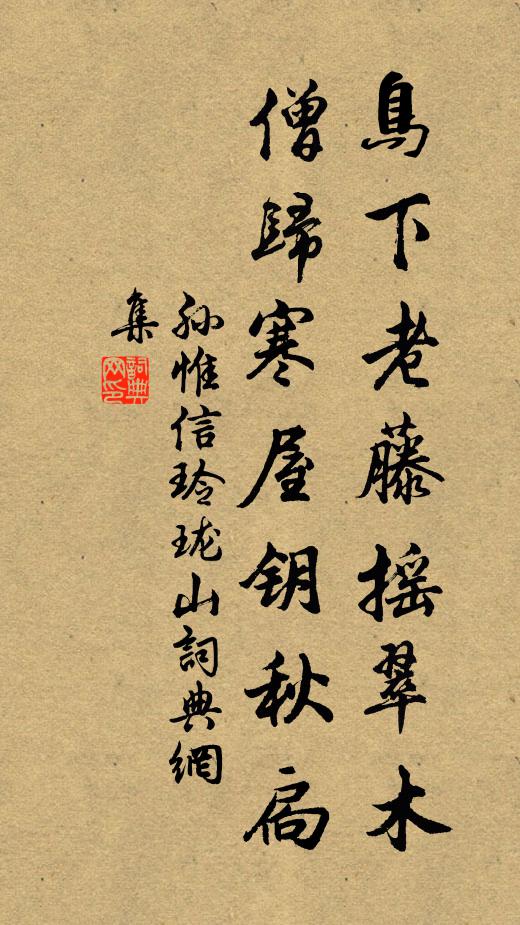 鳥下老藤摇翠木
僧歸寒屋钥秋扃
孙惟信玲珑山詞典網
集
詞典
网印